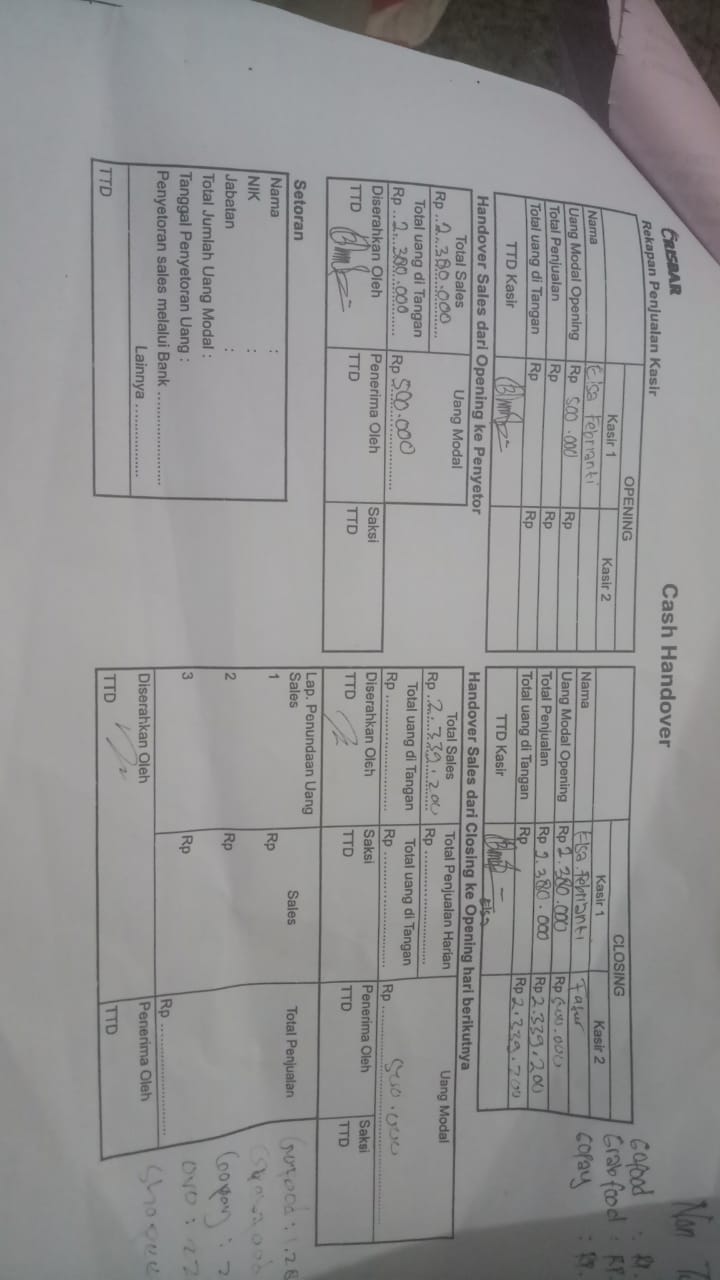 CRISBAR
Cash Handover
Rekapan Penjualan Kasir
OPENING
Kasir 1
Kasir 2
Nama
Elsa Febrianti
Uang Modal Opening
Rp 500.000
Rp
Total Penjualan
Rp
Rp
Total uang di Tangan
Rp
Rp
TTD Kasir
Handover Sales dari Opening ke Penyetor
Total Sales
Uang Modal
Rp ..2.380.000
Total uang di Tangan
Rp ..2.380.000
Rp 500.000
Diserahkan Oleh
Penerima Oleh
Saksi
TTD
TTD
TTD
Setoran
Nama :
NIK :
Jabatan :
Total Jumlah Uang Modal :
Tanggal Penyetoran Uang :
Penyetoran sales melalui Bank ....................
Lainnya ................
TTD
CLOSING
Kasir 1
Kasir 2
Nama
Elsa Febrianti
Fatur
Uang Modal Opening
Rp 2.380.000
Rp 500.000
Total Penjualan
Rp 2.380.000
Rp 2.339.200
Total uang di Tangan
Rp
Rp 2.339.200
TTD Kasir
Elsa
Handover Sales dari Closing ke Opening hari berikutnya
Total Sales
Total Penjualan Harian
Uang Modal
Rp ..2.339.200
Rp ....................
Total uang di Tangan
Total uang di Tangan
Rp ....................
Rp ....................
Rp 500.000
Diserahkan Oleh
Saksi
Penerima Oleh
Saksi
TTD
TTD
TTD
TTD
Lap. Penundaan Uang
Sales
Sales
Total Penjualan
1
Rp
2
Rp
3
Rp
Rp ....................
Diserahkan Oleh
Penerima Oleh
TTD
TTD
Non
Gofood : Rp
Grabfood : Rp
Gopay : Rp.
Gofood : 1.28
Gopay : 2
OVO : 22
Shopee